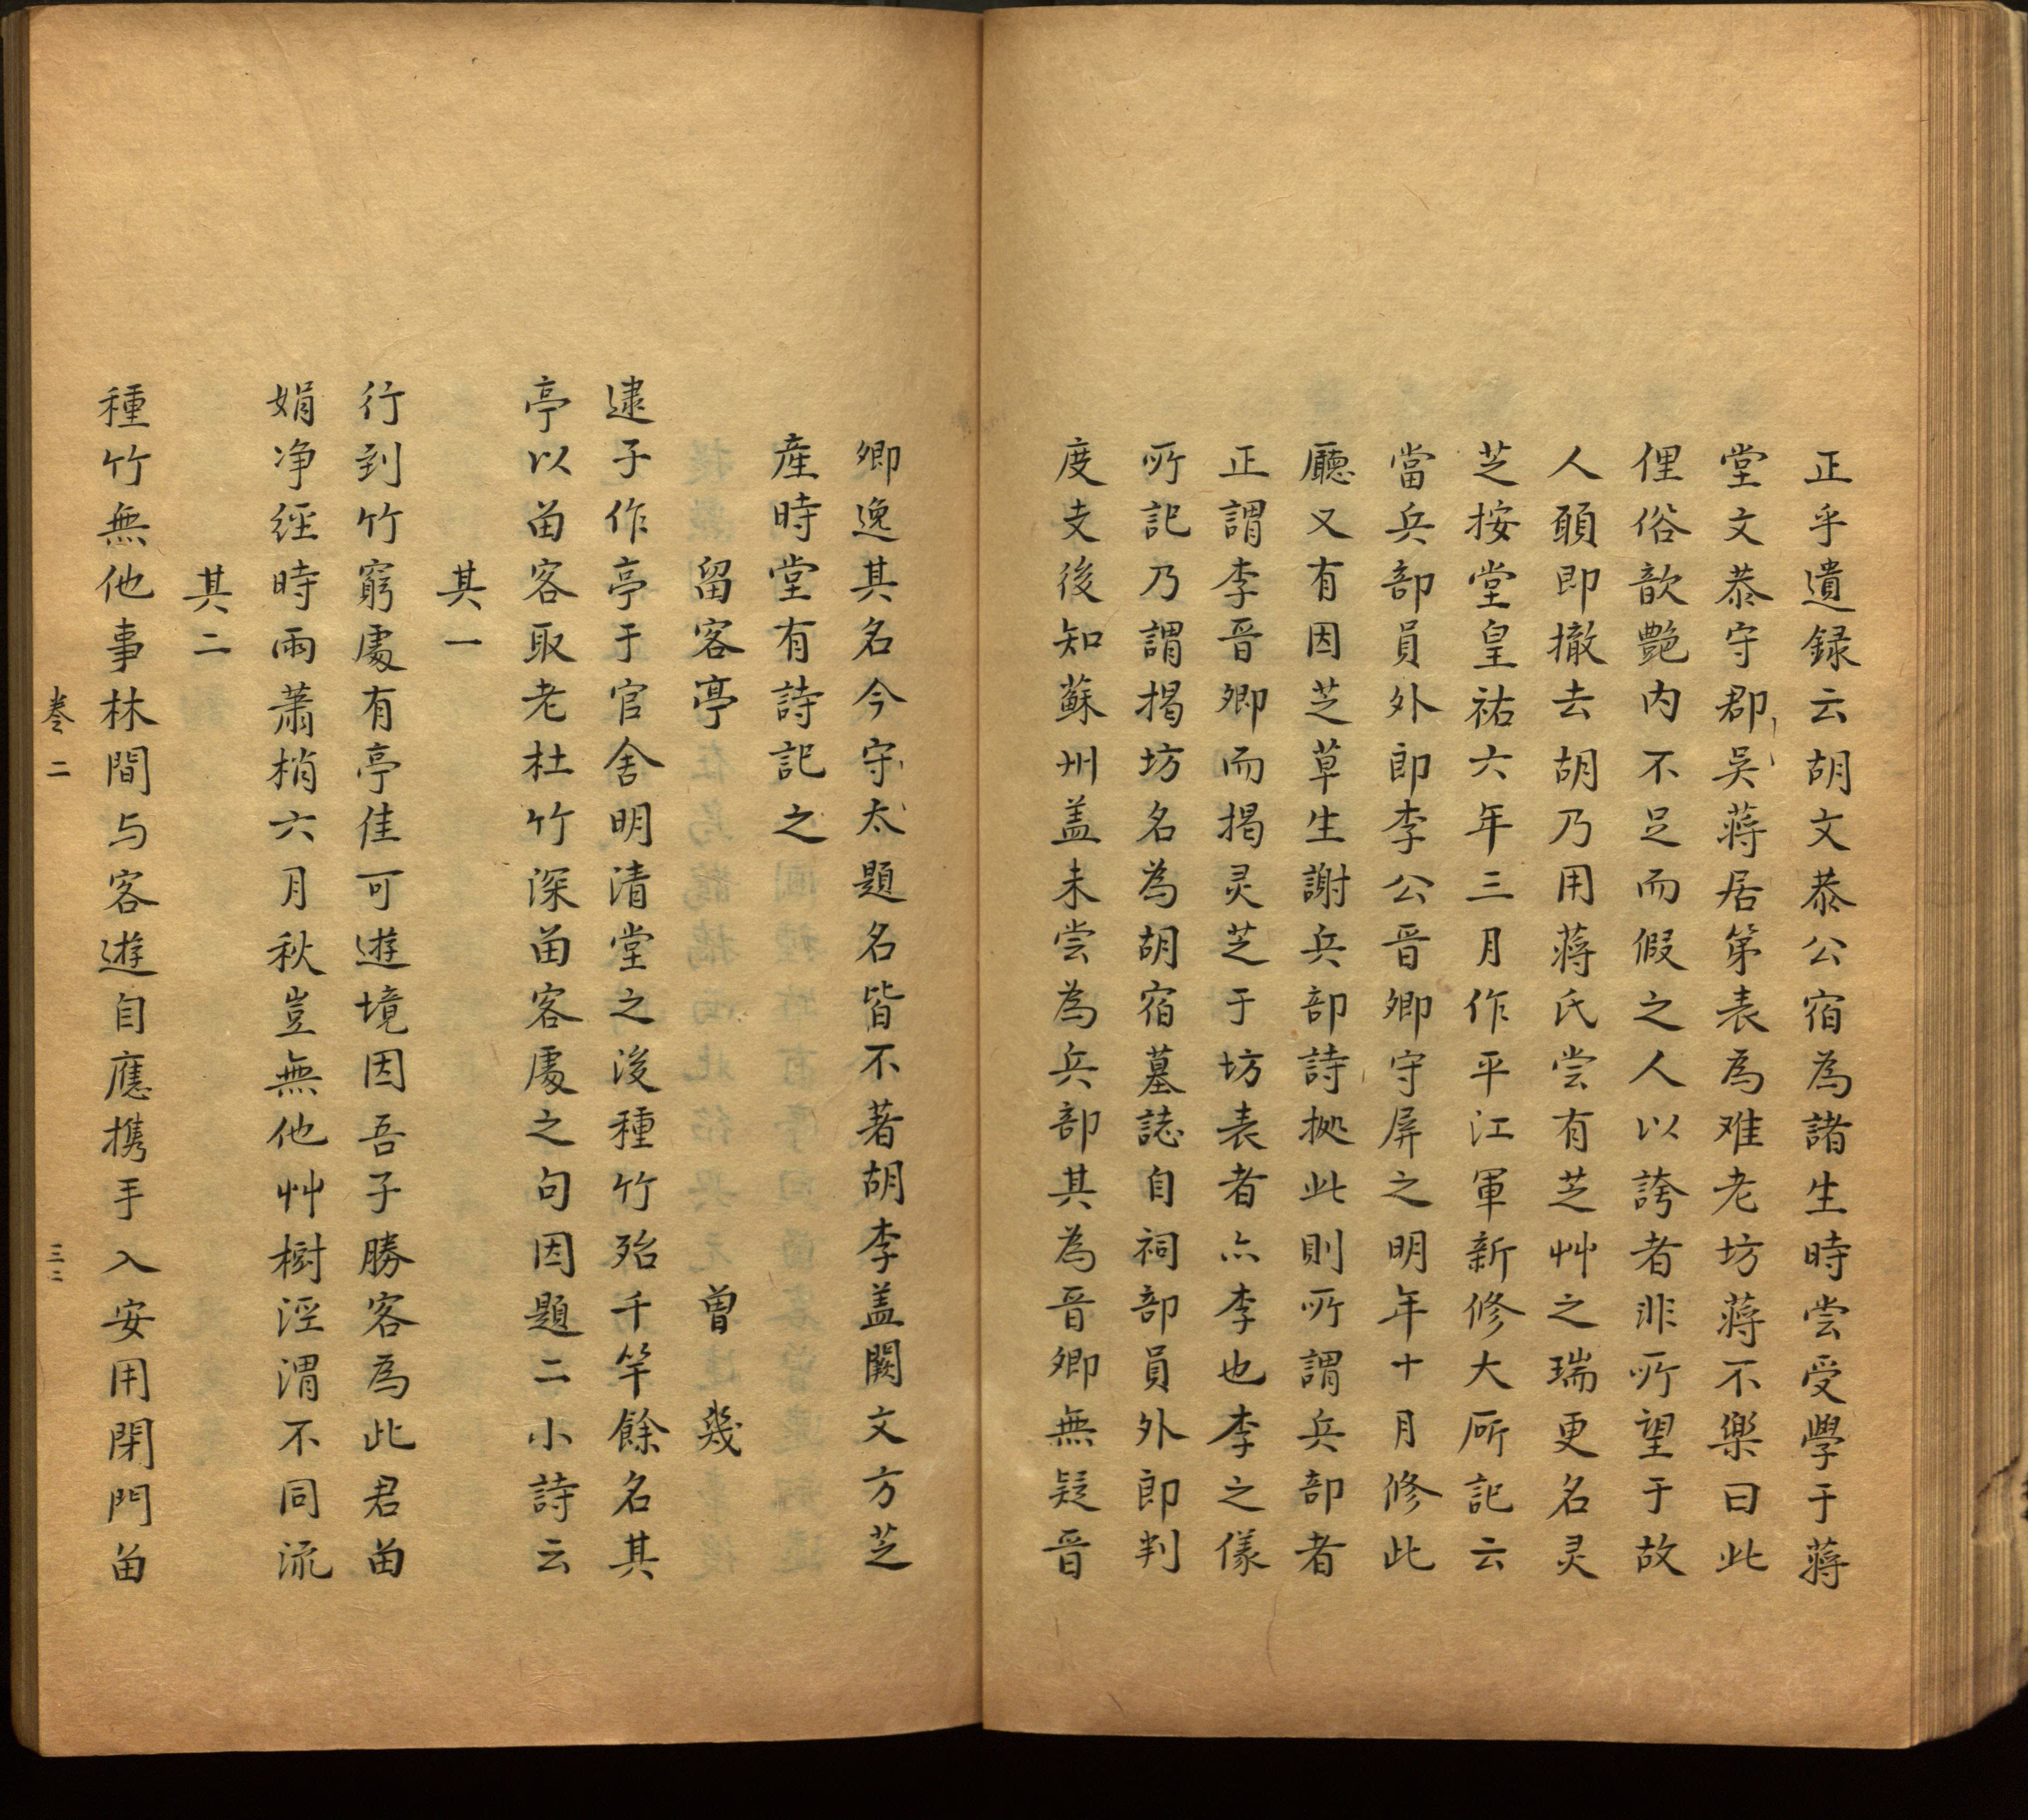 正乎遺録云胡文恭公宿為諸生時尝受學于蔣
堂文恭守郡吳蔣居第表為难老坊蔣不樂曰此
俚俗歆艶内不足而假之人以誇者非所望于故
人頋即撤去胡乃用蔣氏尝有芝艸之瑞更名灵
芝按堂皇祐六年三月作平江軍新修大廳記云
當兵部員外郎李公晋卿守屏之明年十月修此
廳又有因芝草生謝兵部詩㨿此則所謂兵部者
正謂李晋卿而揭灵芝于坊表者亦李也李之儀
所記乃謂揭坊名為胡宿墓誌自祠部員外郎判
度支後知蘇州盖未尝為兵部其為晋卿無疑晋
卿逸其名今守太題名皆不著胡李盖闕文方芝
産時堂有詩記之
留客亭 曾幾
逮子作亭于官舍明清堂之後種竹殆千竿餘名其
亭以畄客取老杜竹深畄客處之句因題二小詩云
其一
行到竹窮處有亭佳可遊境因吾子勝客為此君畄
娟净經時雨蕭梢六月秋豈無他艸樹涇渭不同流
其二
種竹無他事林間与客遊自應携手入安用閉門畄
卷二 三二